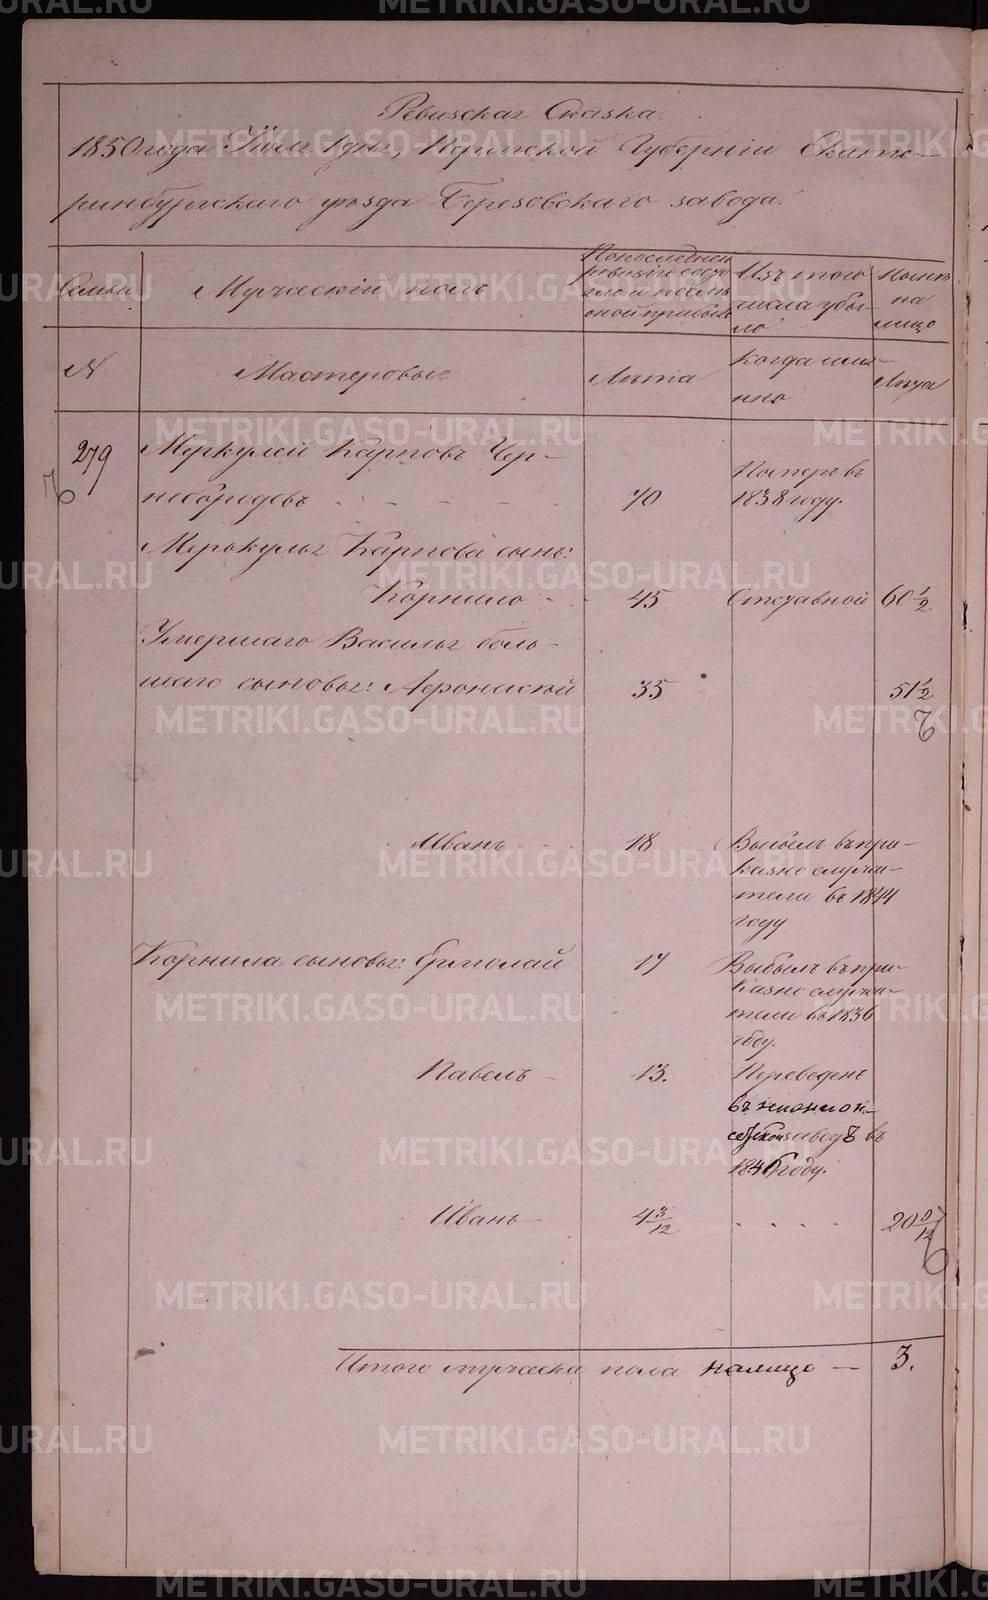 Ревизская Сказка
1850 года Июля 1 дня, Пермской Губернiи Екате-
ринбургскаго уѣзда Березовскаго завода.
Семьи
Мужескiй полъ
Попоследней ревизiи состояло и послѣ оной прибыло
Изъ того числа убыло
Нынѣ на лицо
N
Мастеровые
Лѣта
когда имянно
Лѣта
279
Меркулей Карповъ Чер-
нобородовъ
70
Померъ въ
1838 году.
Меркулья Карпова сынъ:
Корнило
45
Отставной
60 1/2
Умершаго Василья боль-
шаго сыновья: Афонасей
35
51 1/2
Иванъ
18
Выбылъ въ при-
казнослужи-
тели въ 1844
году
Корнила сыновья: Ермолай
17
Выбылъ въ при-
казнослужи-
тели въ 1836
году.
Павелъ
13.
Переведенъ
въ
заводъ въ
году.
Иванъ
4 3/12
20 9/12
Итого мужеска пола налицо — 3.
METRIKI.GASO-URAL.RU